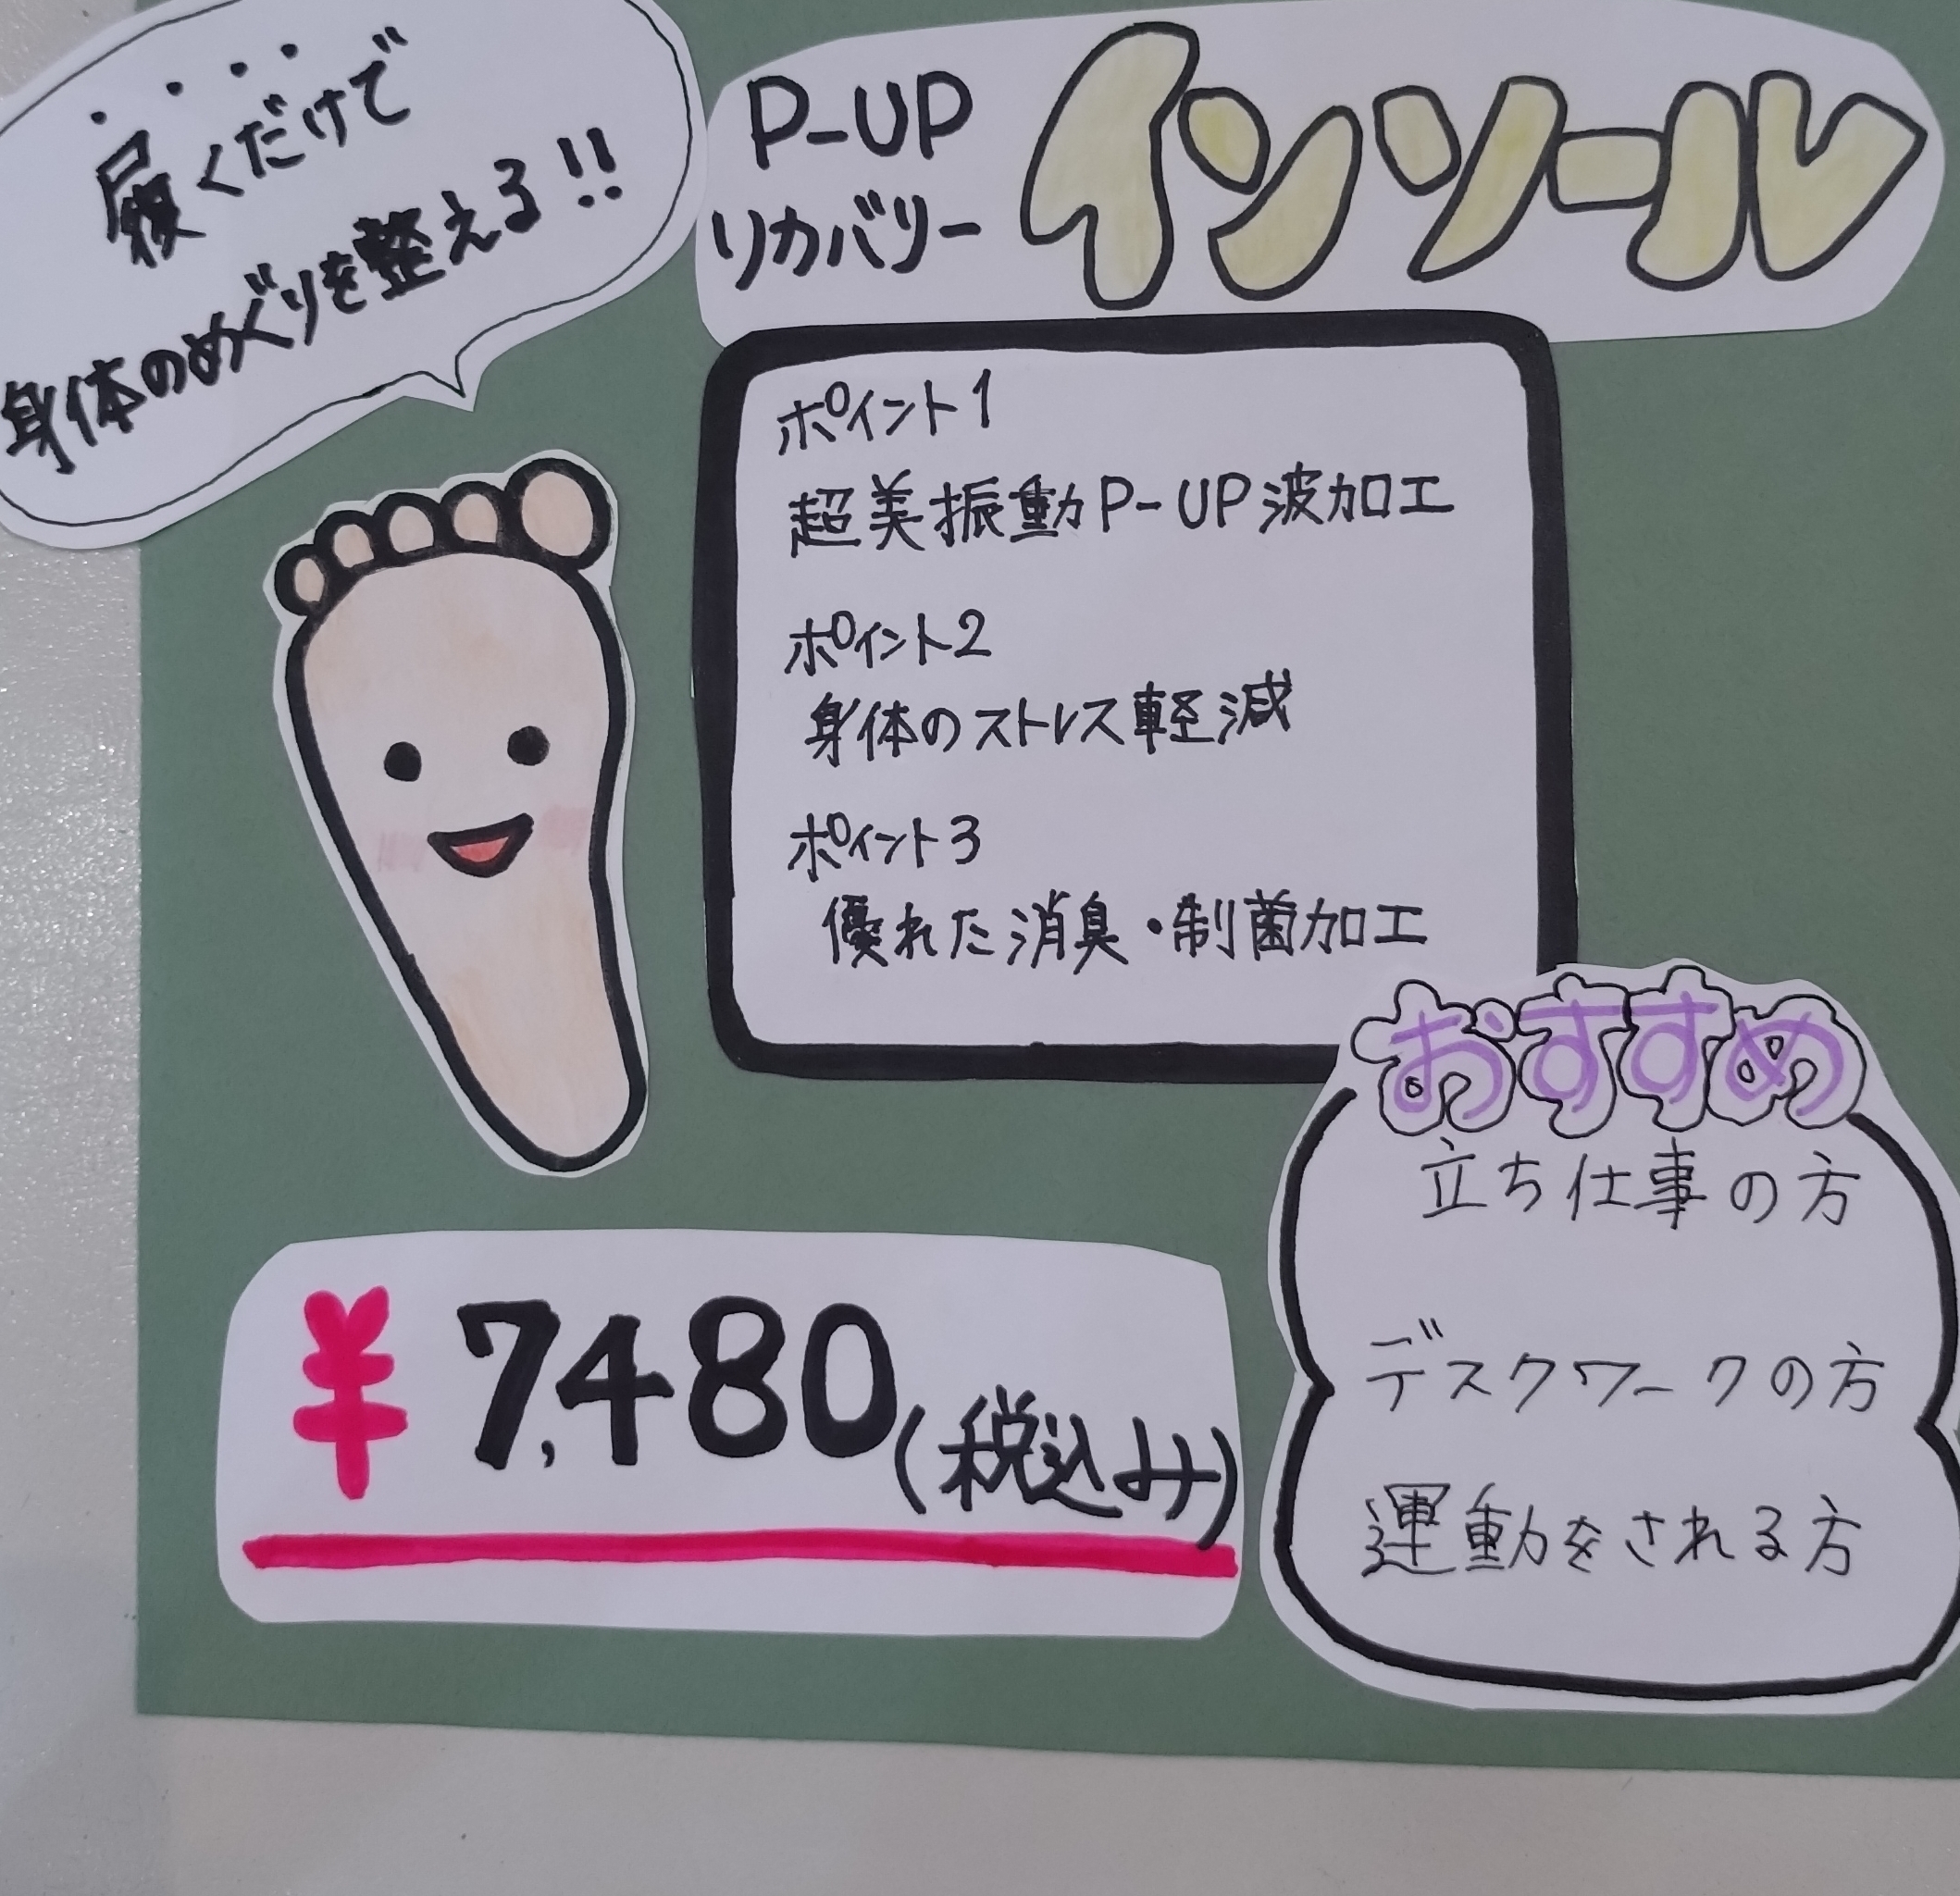 履くだけで
身体のめぐりを整える!!
P-UP
リカバリー
インソール
ポイント1
超美振動P-UP波加工
ポイント2
身体のストレス軽減
ポイント3
優れた消臭・制菌加工
おすすめ
立ち仕事の方
デスクワークの方
運動をされる方
¥7,480(税込み)